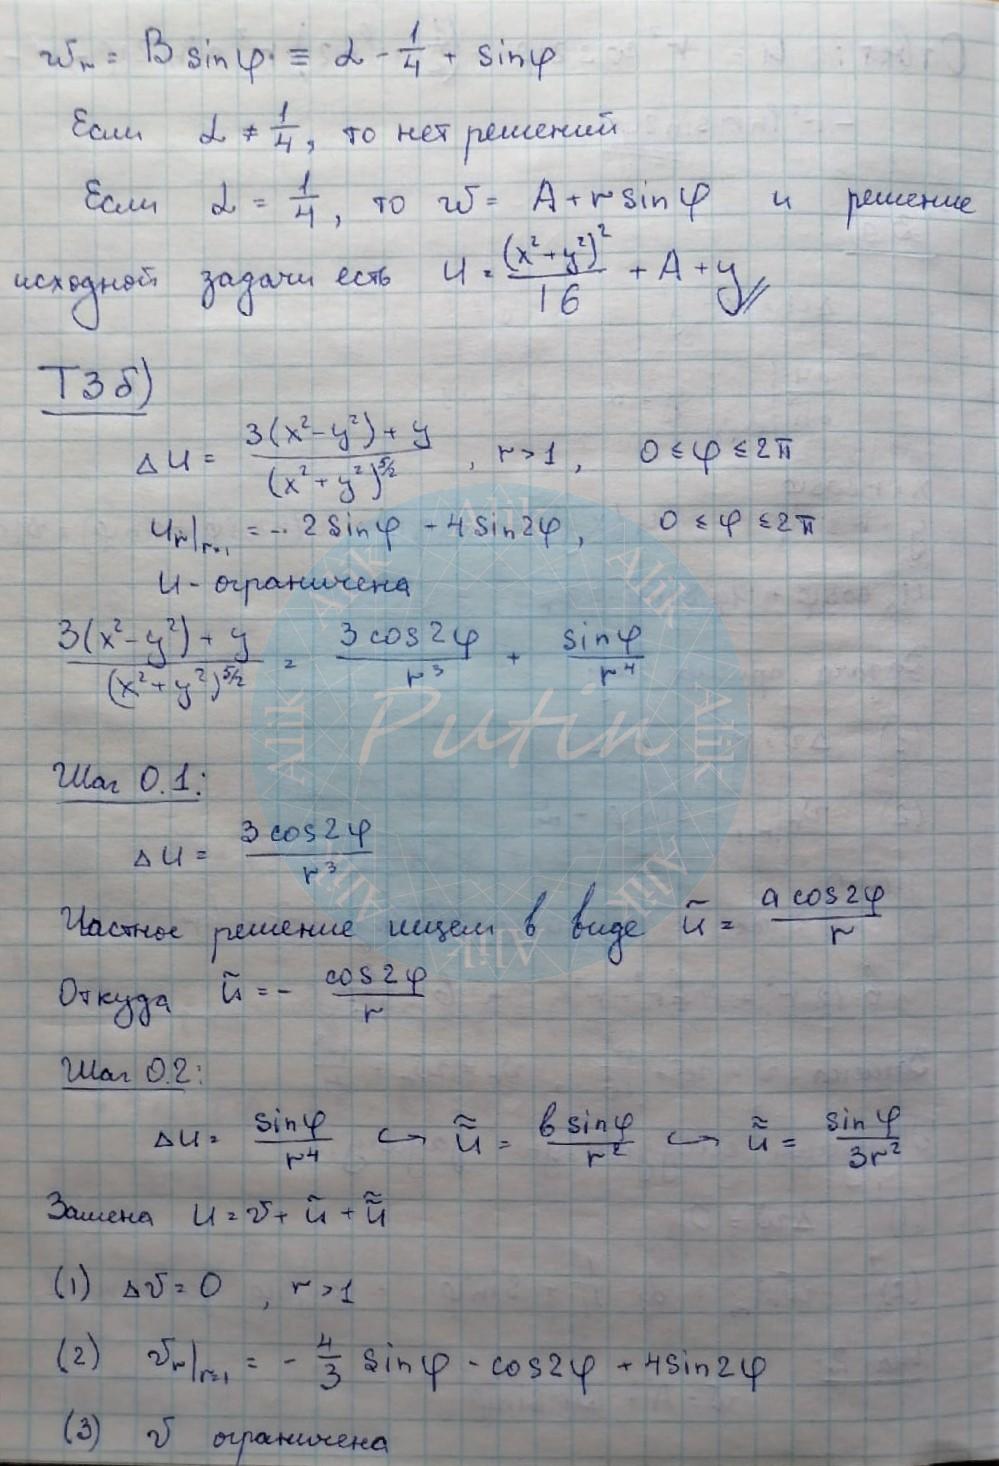 w_r = B sinφ ≡ α - 1/4 + sinφ
Если α ≠ 1/4, то нет решений
Если α = 1/4, то w = A + r sinφ и решение
исходной задачи есть u = (x² + y²)²/16 + A + y
Т3 б)
Δu = (3(x² - y²) + y)/(x² + y²)^(5/2), r > 1, 0 ≤ φ ≤ 2π
u_r|_(r=1) = - 2 sinφ - 4 sin2φ, 0 ≤ φ ≤ 2π
u - ограничена
(3(x² - y²) + y)/(x² + y²)^(5/2) = 3 cos2φ/r³ + sinφ/r⁴
Шаг 0.1:
Δu = 3 cos2φ/r³
Частное решение ищем в виде ũ = a cos2φ/r
Откуда ũ = - cos2φ/r
Шаг 0.2:
Δu = sinφ/r⁴ ↪ ũ̃ = b sinφ/r² ↪ ũ̃ = sinφ/3r²
Замена u = v + ũ + ũ̃
(1) Δv = 0, r > 1
(2) v_r|_(r=1) = - 4/3 sinφ - cos2φ + 4 sin2φ
(3) v ограничена
Putin
Alik
Alik
Alik
Alik
Alik
Alik
Alik
Alik